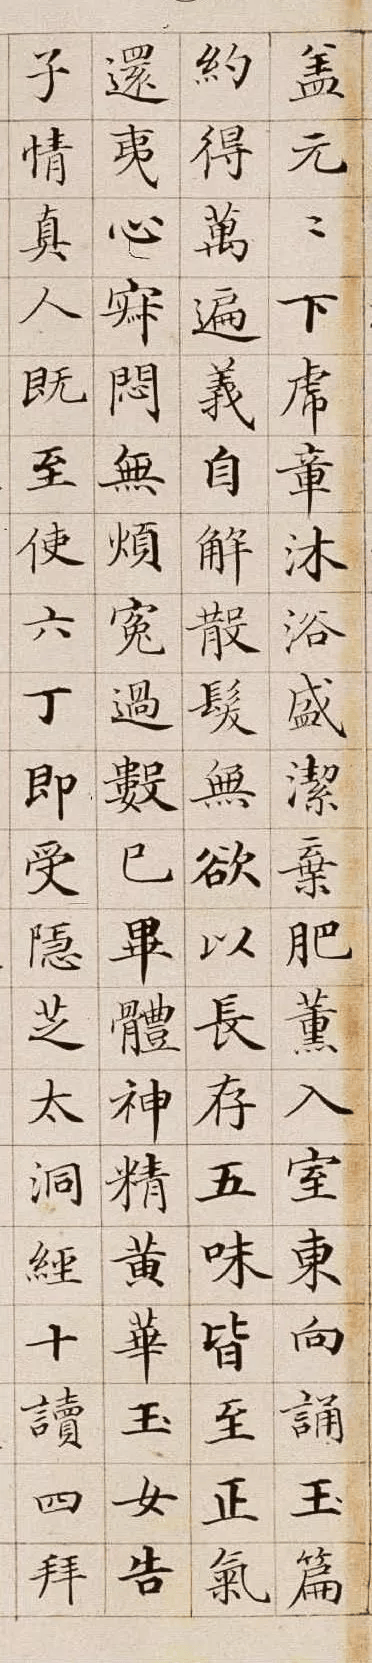 盖元〻下虎章沐浴盛潔棄肥薫入室東向誦玉篇
約得萬遍義自解散髮無欲以長存五味皆至正氣
還夷心寂悶無煩寃過數已畢體神精黄華玉女告
子情真人既至使六丁即受隱芝太洞經十讀四拜